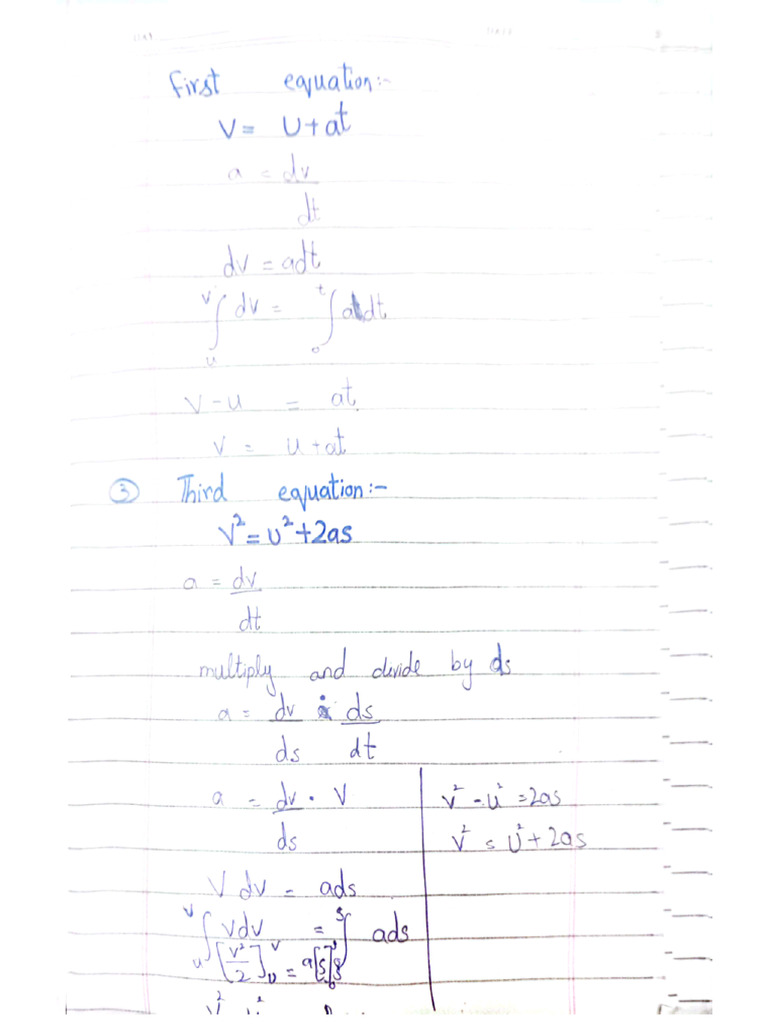 First equation:-
V = U + at
a = dv
dt
dv = adt
v∫u dv = t∫0 adt
v - u = at
v = u + at
③ Third equation:-
V² = U² + 2as
a = dv
dt
multiply and divide by ds
a = dv ds
ds dt
a = dv . V
ds
V dv = ads
v∫u vdv = s∫ ads
[v²/2]v u = a[s]s 0
v² - u² = 2as
v² = U² + 2as